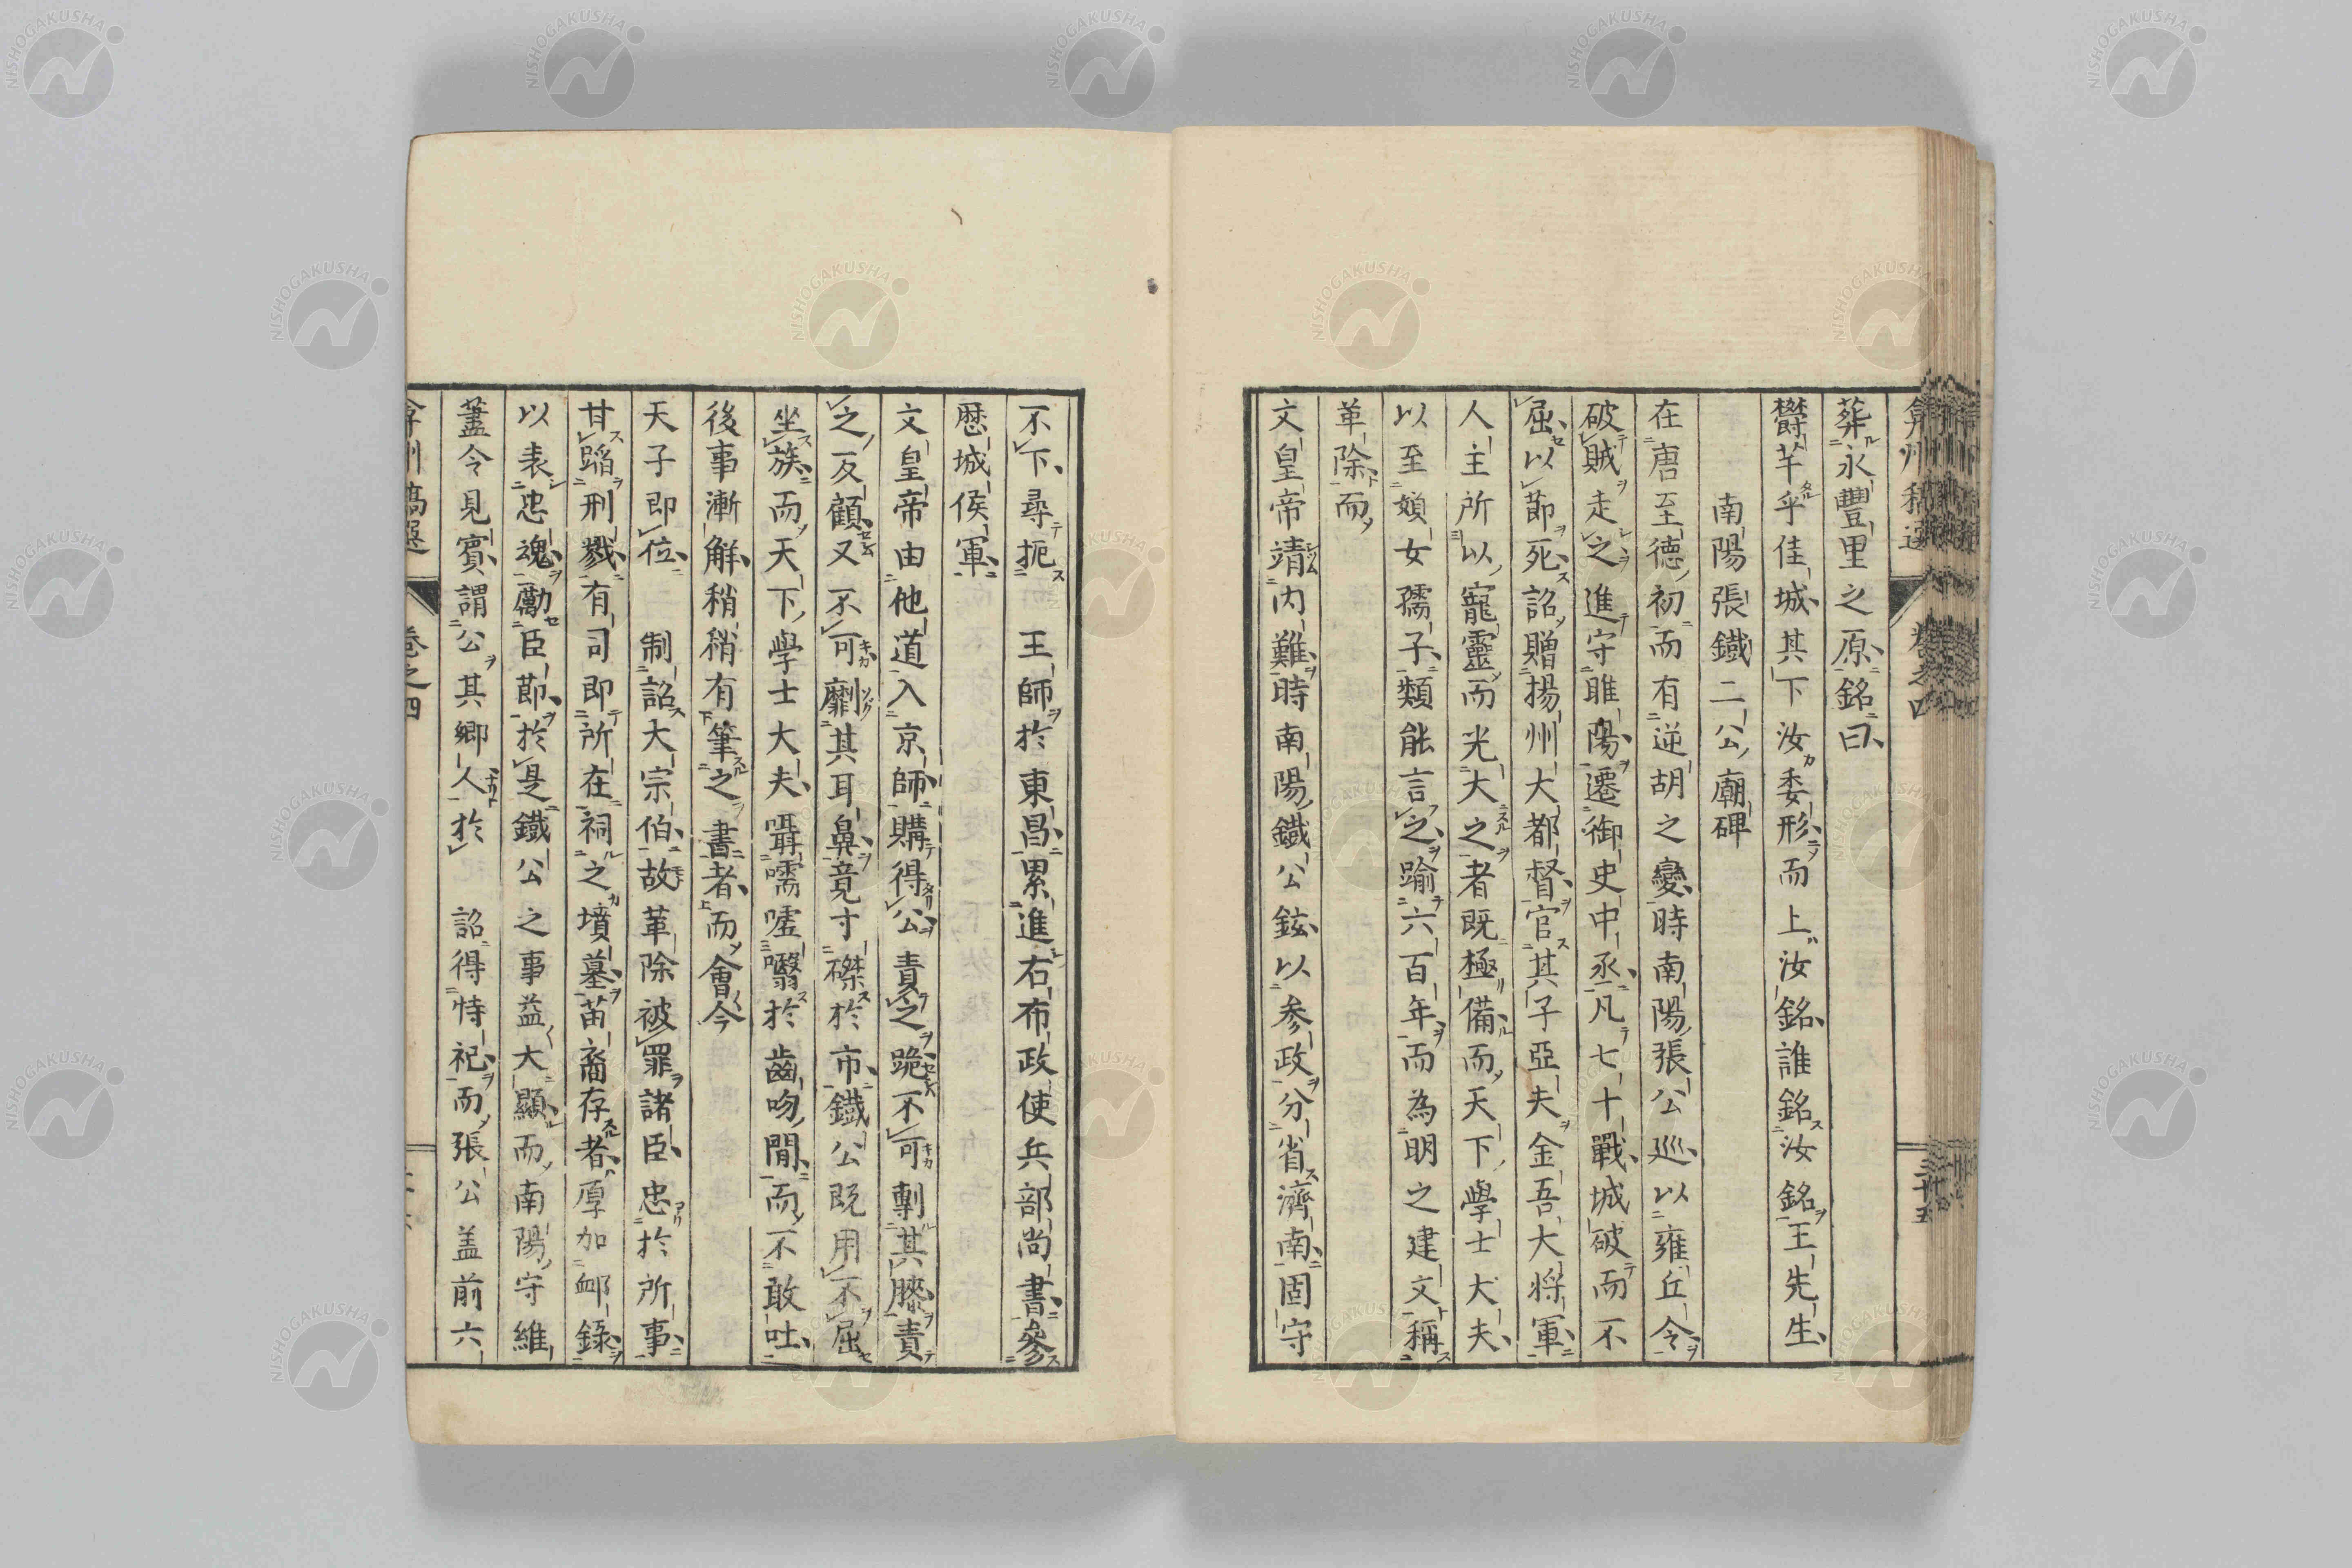 弇州稿選 卷之四 三十五
葬永豐里之原銘曰
欝芊乎佳城其下汝委形而上汝銘誰銘汝銘王先生
南陽張鐵二公廟碑
在唐至德初而有逆胡之變時南陽張公巡以雍丘令
破賊走之進守睢陽遷御史中丞凡七十戰城破而不
屈以節死詔贈揚州大都督官其子亞夫金吾大將軍
人主所以寵靈而光大之者既極備而天下學士大夫
以至嬰女孺子類能言之踰六百年而為明之建文稱
革除而
文皇帝靖内難時南陽鐵公鉉以参政分省濟南固守
不下尋扼 王師於東昌累進右布政使兵部尚書參
歴城侯軍
文皇帝由他道入京師購得公責之跪不可剸其膝責
之反顧又不可劘其耳鼻竟寸磔於市鐵公既用不屈
坐族而天下學士大夫囁嚅嘘噫於齒吻間而不敢吐
後事漸解稍稍有筆之書者而會今
天子即位 制詔大宗伯故革除被罪諸臣忠於所事
甘蹈刑戮有司即所在祠之墳墓苗裔存者厚加卹錄
以表忠魂勵臣節於是鐵公之事益大顯而南陽守維
藎令見賓謂公其鄉人於 詔得特祀而張公盖前六
卷之四
NISHOGAKUSHA